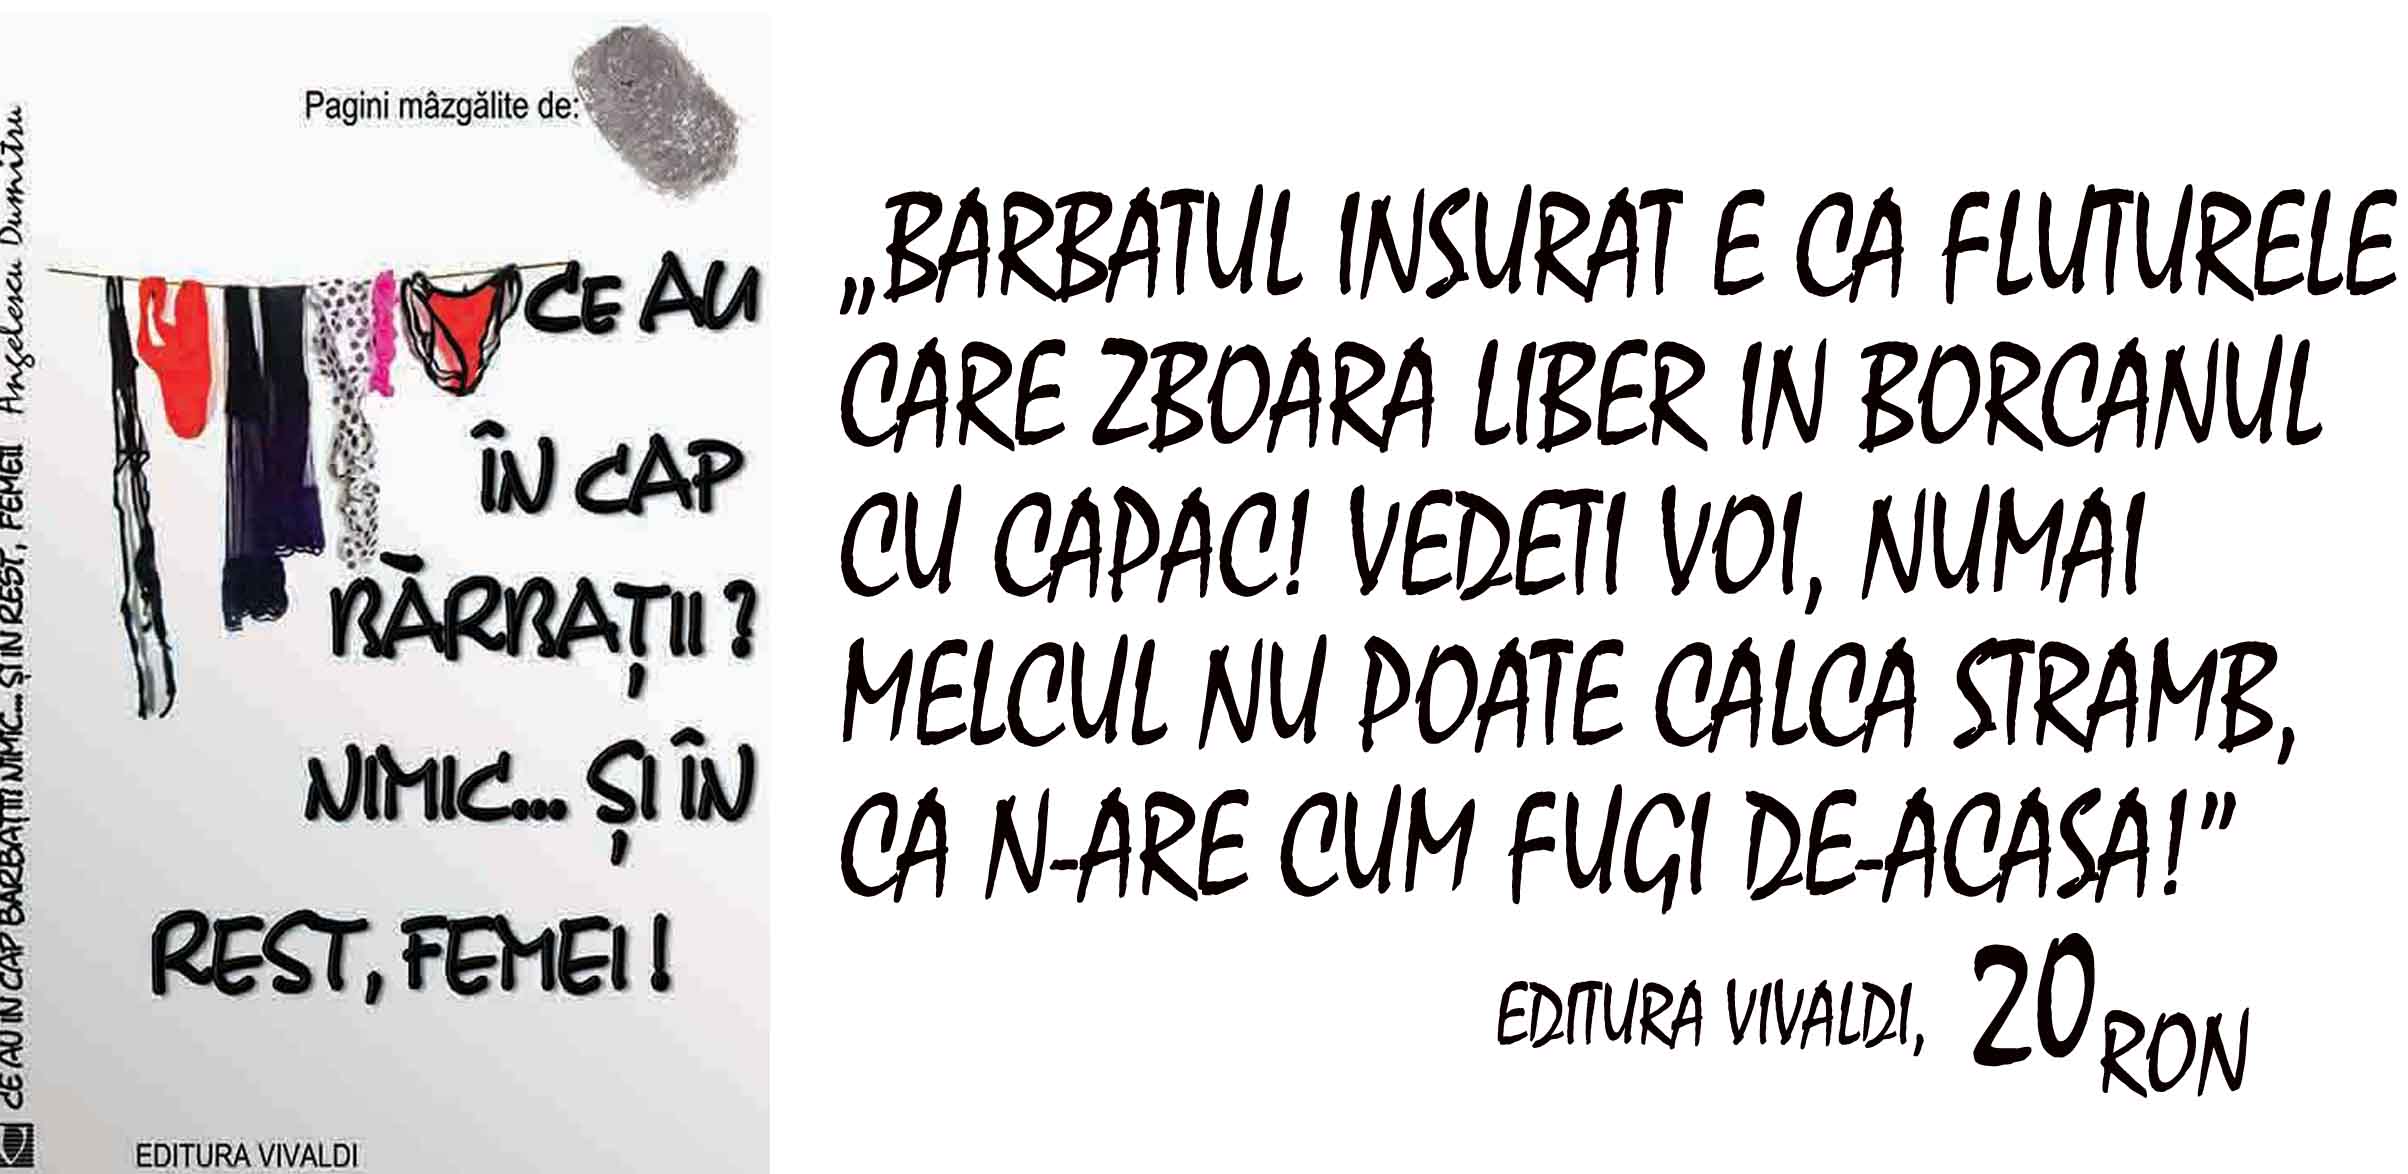 Pagini mâzgălite de:
CE AU
ÎN CAP
BĂRBAȚII?
NIMIC... ȘI ÎN
REST, FEMEI!
EDITURA VIVALDI
CE AU IN CAP BARBATII? NIMIC... ȘI IN REST, FEMEI! Angelescu Dumitru
„BARBATUL INSURAT E CA FLUTURELE
CARE ZBOARA LIBER IN BORCANUL
CU CAPAC! VEDETI VOI, NUMAI
MELCUL NU POATE CALCA STRAMB,
CA N-ARE CUM FUGI DE-ACASA!”
EDITURA VIVALDI, 20 RON